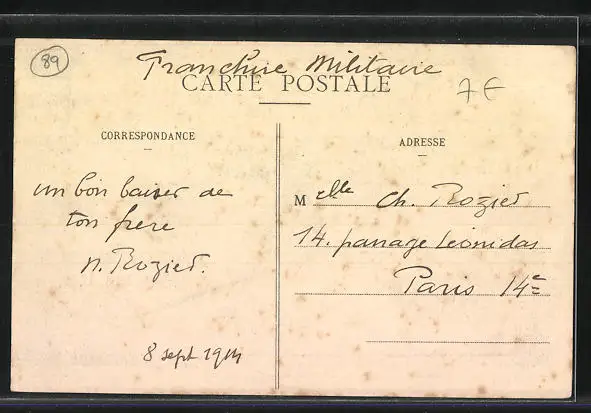 89
Franchise Militaire
CARTE POSTALE
7€
CORRESPONDANCE
un bon baiser de
ton frère
N. Rozier.
8 sept 1914
ADRESSE
M elle Ch. Rozier
14. passage Léonidas
Paris 14e